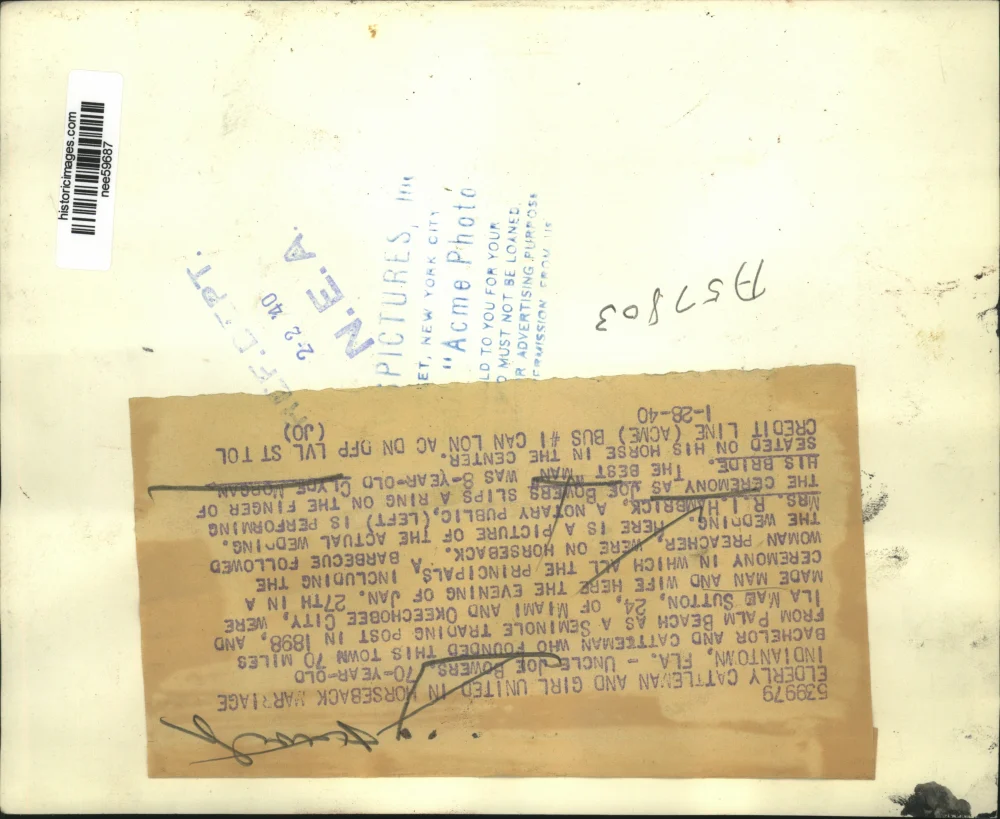 historicimages.com
nee59687
REF. DEPT.
2-2 40
N.E.A.
PICTURES,
ET, NEW YORK CITY
"Acme Photo
LD TO YOU FOR YOUR
D MUST NOT BE LOANED
R ADVERTISING PURPOSE
ERMISSION FROM
A57803
539979
ELDERLY CATTLEMAN AND GIRL UNITED IN HORSEBACK MARRIAGE
INDIANTOWN, FLA. - UNCLE JOE BOWERS, 70-YEAR-OLD
BACHELOR AND CATTEMAN WHO FOUNDED THIS TOWN 70 MILES
FROM PALM BEACH AS A SEMINOLE TRADING POST IN 1898, AND
ILA MAE SUTTON, 24, OF MIAMI AND OKEECHOBEE CITY, WERE
MADE MAN AND WIFE HERE THE EVENING OF JAN. 27TH IN A
CEREMONY IN WHICH ALL THE PRINCIPALS, INCLUDING THE
WOMAN PREACHER, WERE ON HORSEBACK. A BARBECUE FOLLOWED
THE WEDDING. HERE IS A PICTURE OF THE ACTUAL WEDDING.
MRS. R.L. HAMBRICK, A NOTARY PUBLIC, (LEFT) IS PERFORMING
THE CEREMONY AS JOE BOWERS SLIPS A RING ON THE FINGER OF
HIS BRIDE. THE BEST MAN WAS 8-YEAR-OLD CLYDE MORGAN
SEATED ON HIS HORSE IN THE CENTER.
CREDIT LINE (ACME) BUS #1 CAN LON AC DN DFP LVL ST TOL
1-28-40 (JO)